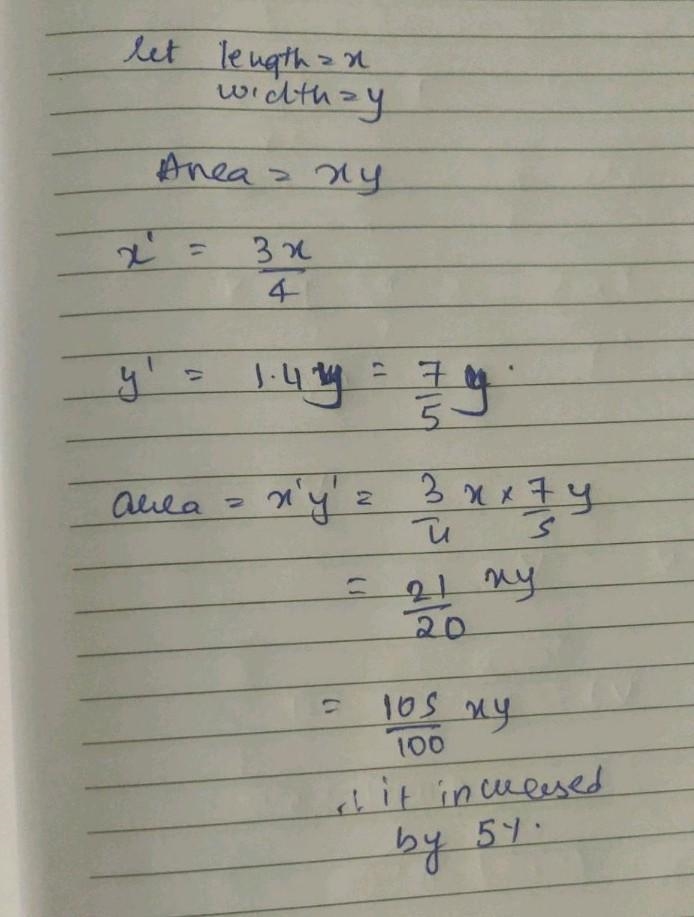 let length = x
width = y
Area = xy
x' = 3x/4
y' = 1.4y = 7/5 y.
area = x'y' = 3/4 x × 7/5 y
= 21/20 xy
= 105/100 xy
∴ it increased
by 5%.